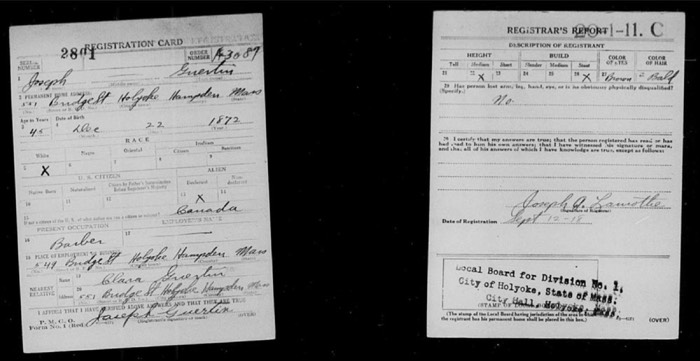 REGISTRATION CARD
2891
SERIAL NUMBER
ORDER NUMBER
Joseph Guertin
PERMANENT HOME ADDRESS:
551 Bridge St Holyoke Hampden Mass
Age in Years
Date of Birth
45 Dec 22 1872
RACE
White
Negro
Oriental
Indian
Citizen
X
U. S. CITIZEN
ALIEN
Native Born
Naturalized
Citizen by Father's Naturalization Before Registrant's Majority
Declarant
Non-declarant
X
Canada
PRESENT OCCUPATION
EMPLOYER'S NAME
Barber
PLACE OF EMPLOYMENT OR BUSINESS
549 Bridge St Holyoke Hampden Mass
NEAREST RELATIVE
Name
Clara Guertin
Address
551 Bridge St Holyoke Hampden Mass
I AFFIRM THAT I HAVE VERIFIED ABOVE ANSWERS AND THAT THEY ARE TRUE
P. M. G. O.
Form No. 1 (Red)
Joseph Guertin
(OVER)
REGISTRAR'S REPORT
-11. C
DESCRIPTION OF REGISTRANT
HEIGHT
BUILD
COLOR OF EYES
COLOR OF HAIR
Tall
Medium
Short
Slender
Medium
Stout
X X Brown Bald
Has person lost arm, leg, hand, eye, or is he obviously physically disqualified?
(Specify.)
No.
I certify that my answers are true; that the person registered has read or has
had read to him his own answers; that I have witnessed his signature or mark,
and that all of his answers of which I have knowledge are true, except as follows:
Joseph A. Lamothe
Date of Registration
Sept 12-18
Local Board for Division No. 1,
City of Holyoke, State of Mass.
City Hall, Holyoke, Mass.
(The stamp of the Local Board having jurisdiction of the area in which
the registrant has his permanent home shall be placed in this box.)
(OVER)